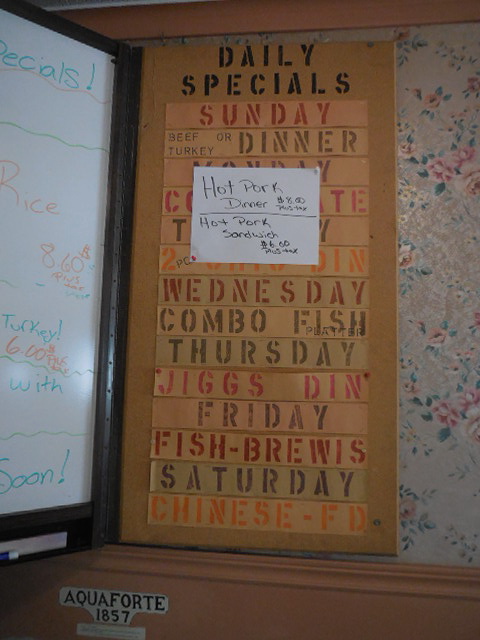 Specials!
Rice
8.60
plus
Turkey!
6.00
with
Soon!
DAILY
SPECIALS
SUNDAY
BEEF OR TURKEY DINNER
MONDAY
Hot Pork
Dinner $8.00
plus tax
Hot Pork
Sandwich
$6.00
plus tax
DIN
WEDNESDAY
COMBO FISH
PLATTER
THURSDAY
JIGGS DIN
FRIDAY
FISH-BREWIS
SATURDAY
CHINESE-FD
AQUAFORTE
1857